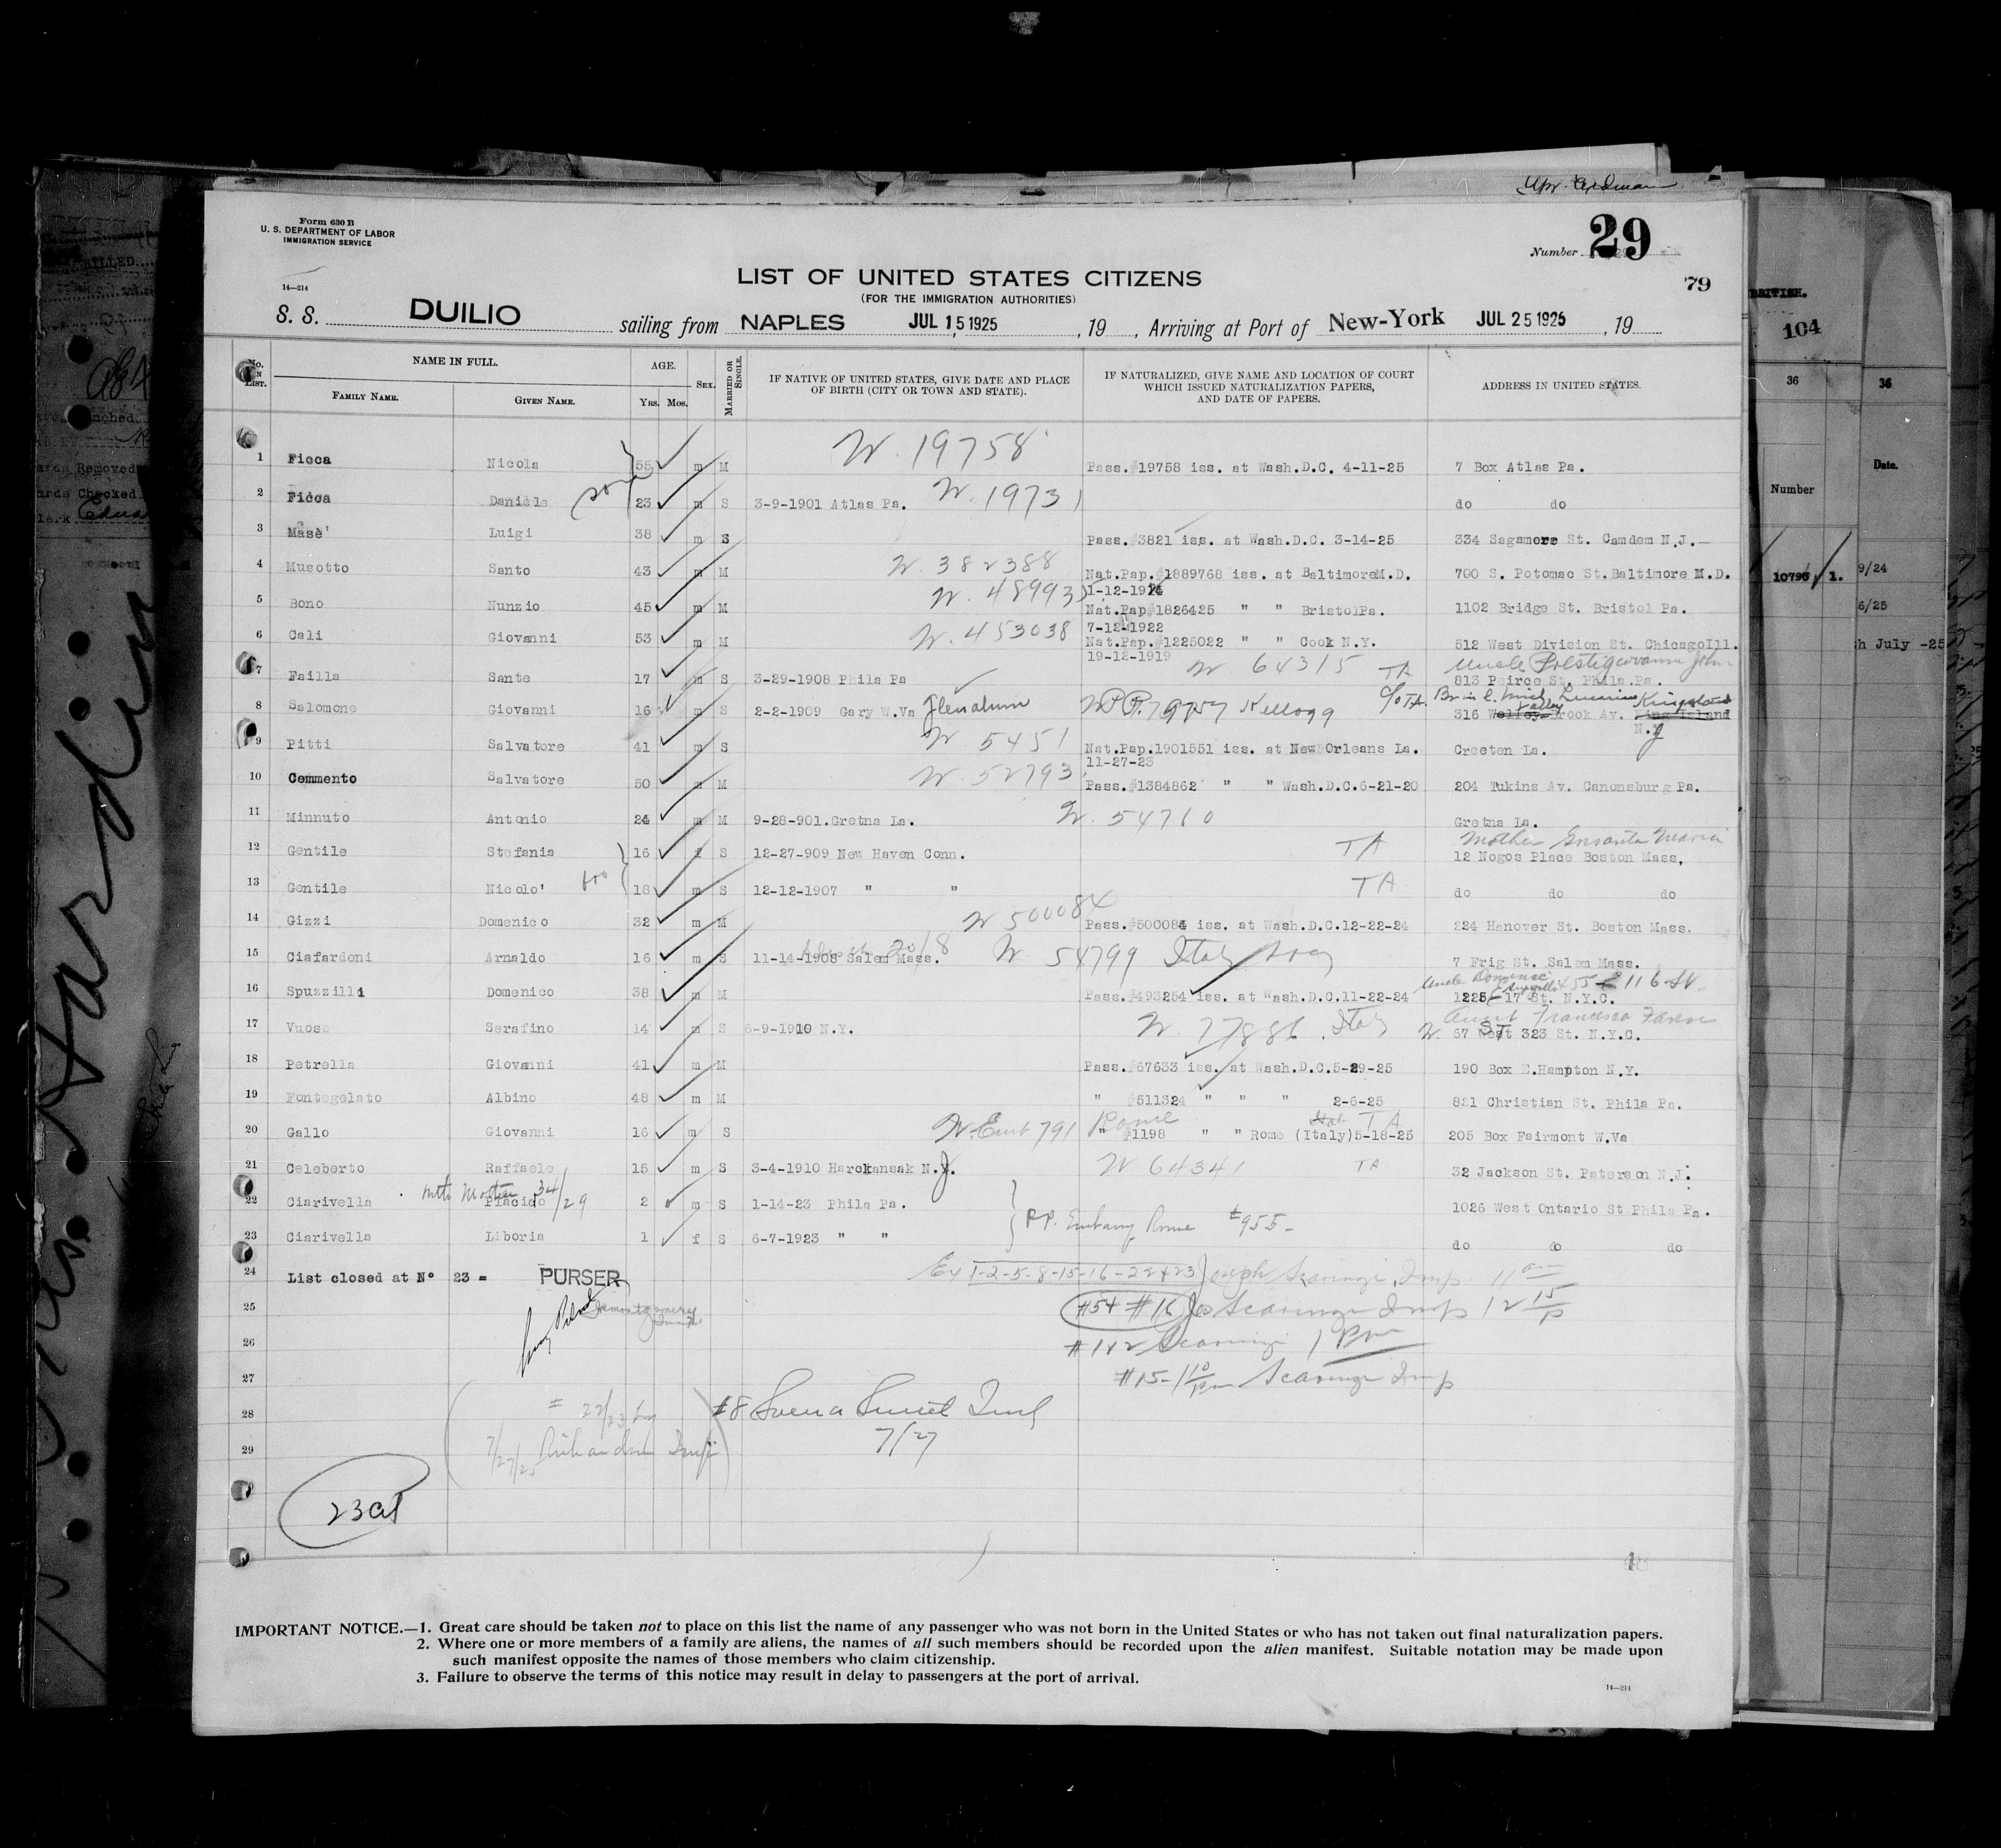 Form 630 B
U. S. DEPARTMENT OF LABOR
IMMIGRATION SERVICE
14—214
Number 29
79
LIST OF UNITED STATES CITIZENS
(FOR THE IMMIGRATION AUTHORITIES)
S. S. DUILIO sailing from NAPLES JUL 15 1925, 19 , Arriving at Port of New-York JUL 25 1925, 19
No. IN LIST. NAME IN FULL. AGE. SEX. MARRIED OR SINGLE. IF NATIVE OF UNITED STATES, GIVE DATE AND PLACE OF BIRTH (CITY OR TOWN AND STATE). IF NATURALIZED, GIVE NAME AND LOCATION OF COURT WHICH ISSUED NATURALIZATION PAPERS, AND DATE OF PAPERS. ADDRESS IN UNITED STATES.
FAMILY NAME. GIVEN NAME. YRS. MOS.
1 Ficca Nicola 55 m M W. 19758 Pass.#19758 iss. at Wash.D.C. 4-11-25 7 Box Atlas Pa.
2 Ficca Daniele 23 m S 3-9-1901 Atlas Pa. W. 19731 do do
3 Masè' Luigi 38 m S Pass.#3821 iss. at Wash.D.C. 3-14-25 334 Sagamore St. Camdem N.J.—
4 Musotto Santo 43 m M W. 382388 Nat.Pap.#1889768 iss. at BaltimoreM.D. 700 S. Potomac St.Baltimore M.D.
1-12-1924
5 Bono Nunzio 45 m M W. 48993 Nat.Pap#1826425 " " BristolPa. 1102 Bridge St. Bristol Pa.
7-12-1922
6 Cali Giovanni 53 m M W. 453038 Nat.Pap.#1225022 " " Cook N.Y. 512 West Division St. ChicagoIll.
19-12-1919
7 Failla Sante 17 m S 3-29-1908 Phila Pa W 64315 TA Uncle John
813 Peirce St. Phila.Pa.
8 Salomone Giovanni 16 m S 2-2-1909 Gary W.Va Glenalum Kellogg c/o TA.
316 Welley Valley Brook Av. King Island Kingsland
N.J
9 Pitti Salvatore 41 m S W 5451 Nat.Pap.1901551 iss. at New Orleans La. Creeten La.
11-27-23
10 Cemmento Salvatore 50 m M W. 52793 Pass.#1384862 " " Wash.D.C.6-21-20 204 Tukins Av. Canonsburg Pa.
11 Minnuto Antonio 24 m M 9-28-901.Gretna La. W. 54710 Gretna La.
12 Gentile Stefania 16 f S 12-27-909 New Haven Conn. TA Mother Maria
12 Nogos Place Boston Mass,
13 Gentile Nicolo' 18 m S 12-12-1907 " " TA do do do
14 Gizzi Domenico 32 m M W 500084 Pass.#500084 iss. at Wash.D.C.12-22-24 224 Hanover St. Boston Mass.
15 Ciafardoni Arnaldo 16 m S 11-14-1908 Salem Mass. W. 54799 Italy 7 Frig St. Salem Mass.
16 Spuzzilli Domenico 38 m M Pass.#493254 iss. at Wash.D.C.11-22-24 Uncle 455 E 116 St.
1225-17 St. N.Y.C.
17 Vuoso Serafino 14 m S 6-9-1910 N.Y. W. 77886 Italy Aunt Francesca Farese
67 West 323 St. N.Y.C.
18 Petrella Giovanni 41 m M Pass.#67633 iss. at Wash.D.C.5-29-25 190 Box E.Hampton N.Y.
19 Fontegelato Albino 48 m M " #511324 " " " 2-6-25 821 Christian St. Phila Pa.
20 Gallo Giovanni 16 m S W. Emb 791 Rome Ital TA
" #1198 " " Rome (Italy)5-18-25 205 Box Fairmont W.Va
21 Celeberto Raffaele 15 m S 3-4-1910 Harckansak N.J. W 64341 TA 32 Jackson St. Paterson N.J.
with Mother 34/29
22 Ciarivella Placido 2 m S 1-14-23 Phila Pa. 1026 West Ontario St Phila Pa.
PP. Embassy Rome #955-
23 Ciarivella Liboria 1 f S 6-7-1923 " " do do do
24 List closed at N° 23 = PURSER Ex 1-2-5-8-15-16-22+23 Joseph Scaringi Insp 11 am
25 #5+ #16 Jos Scaringi Insp 12 15/p
26 #1+2 Scaringi 1 Pm
27 #15-1 10/pm Scaringi Insp
28 #22/23 #8
29 7/27/25 Insp 7/27
23 a
IMPORTANT NOTICE.—1. Great care should be taken not to place on this list the name of any passenger who was not born in the United States or who has not taken out final naturalization papers.
2. Where one or more members of a family are aliens, the names of all such members should be recorded upon the alien manifest. Suitable notation may be made upon
such manifest opposite the names of those members who claim citizenship.
3. Failure to observe the terms of this notice may result in delay to passengers at the port of arrival.
14—214
BRITISH.
104
36 36
Date.
Number
10796 1. 9/24
6/25
July -25